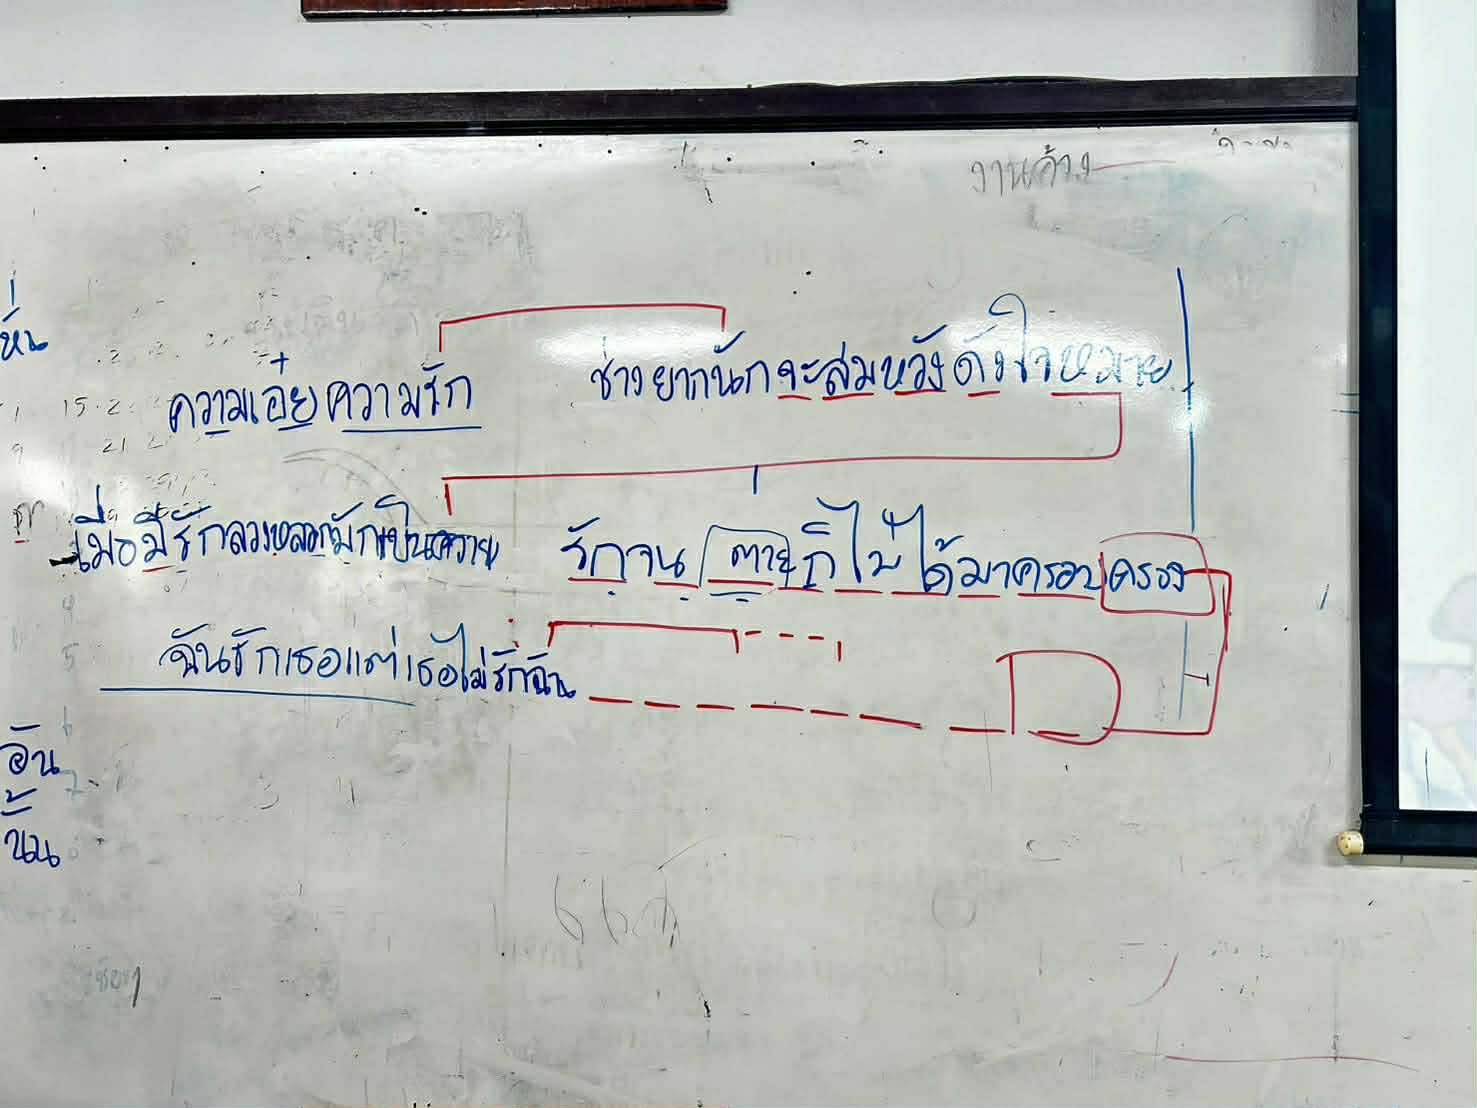 งานค้าง
หั่น
ความเอ๋ย ความรัก ช่างยากนักจะสมหวังดังใจหมาย
เมื่อมีรักลวงหลอกมักเป็นควาย รักจนตายก็ไม่ได้มาครอบครอง
ฉันรักเธอแต่เธอไม่รักฉัน
อัน
นั้น